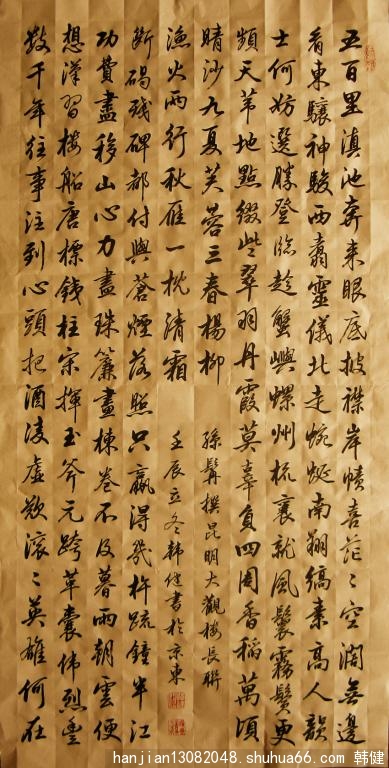 五百里滇池奔來眼底披襟岸幘喜茫々空闊無邊
看東驤神駿西翥靈儀北走蜿蜒南翔縞素高人韻
士何妨選勝登臨趁蟹嶼螺州梳裹就風鬟霧鬢更
蘋天葦地點綴些翠羽丹霞莫辜負四周香稻萬頃
晴沙九夏芙蓉三春楊柳
數千年往事注到心頭把酒凌虛歎滾々英雄何在
想漢習樓船唐標鐵柱宋揮玉斧元跨革囊偉烈豐
功費盡移山心力盡珠簾畫棟卷不及暮雨朝雲便
斷碣殘碑都付與蒼煙落照只贏得幾杵疏鐘半江
漁火兩行秋雁一枕清霜
孫髯撰昆明大觀樓長聯
壬辰立冬韓健書於京東
hanjian13082048.shuhua66.com 韩健